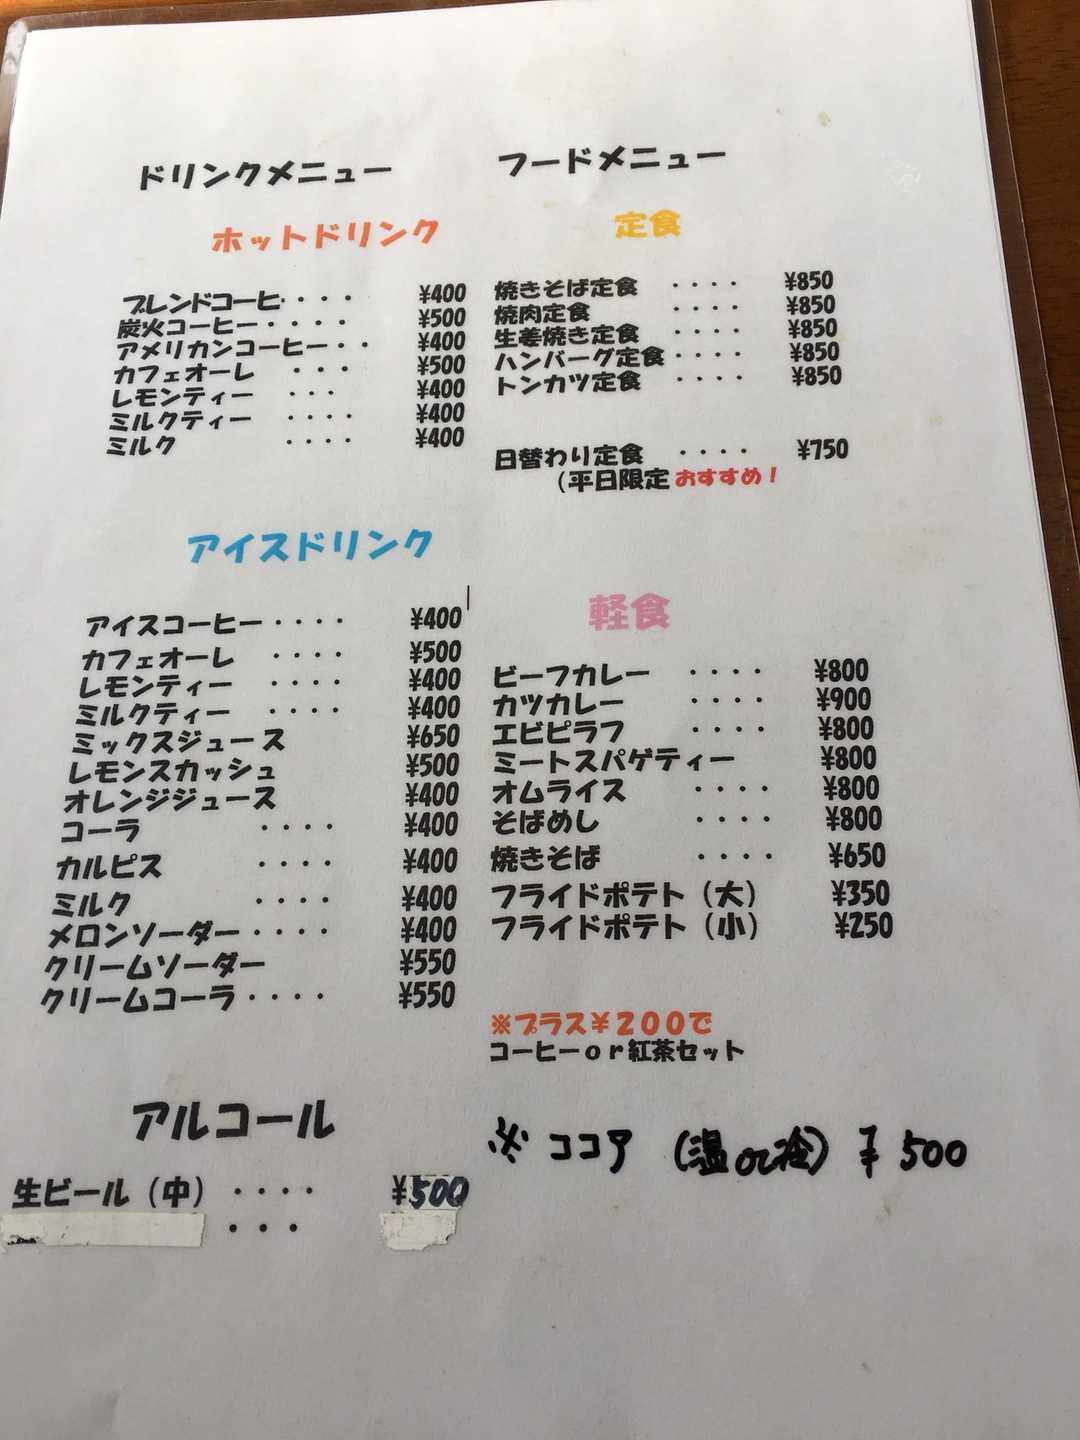 ドリンクメニュー
ホットドリンク
ブレンドコーヒ・・・・ ¥400
炭火コーヒー・・・・ ¥500
アメリカンコーヒー・・ ¥400
カフェオーレ ・・・ ¥500
レモンティー ・・・ ¥400
ミルクティー ・・・・ ¥400
ミルク ・・・・ ¥400
アイスドリンク
アイスコーヒー・・・・ ¥400
カフェオーレ ・・・・ ¥500
レモンティー ・・・・ ¥400
ミルクティー ・・・・ ¥400
ミックスジュース ¥650
レモンスカッシュ ¥500
オレンジジュース ¥400
コーラ ・・・・ ¥400
カルピス ・・・・ ¥400
ミルク ・・・・ ¥400
メロンソーダー・・・・ ¥400
クリームソーダー ¥550
クリームコーラ・・・・ ¥550
アルコール
生ビール（中）・・・・ ¥500
・・・
フードメニュー
定食
焼きそば定食 ・・・・ ¥850
焼肉定食 ・・・・ ¥850
生姜焼き定食 ・・・・ ¥850
ハンバーグ定食・・・・ ¥850
トンカツ定食 ・・・・ ¥850
日替わり定食 ・・・・ ¥750
（平日限定 おすすめ！
軽食
ビーフカレー ・・・・ ¥800
カツカレー ・・・・ ¥900
エビピラフ ・・・・ ¥800
ミートスパゲティー ¥800
オムライス ・・・・ ¥800
そばめし ・・・・ ¥800
焼きそば ・・・・ ¥650
フライドポテト（大） ¥350
フライドポテト（小） ¥250
※プラス￥２００で
コーヒーｏｒ紅茶セット
※ ココア (温or冷) ¥500